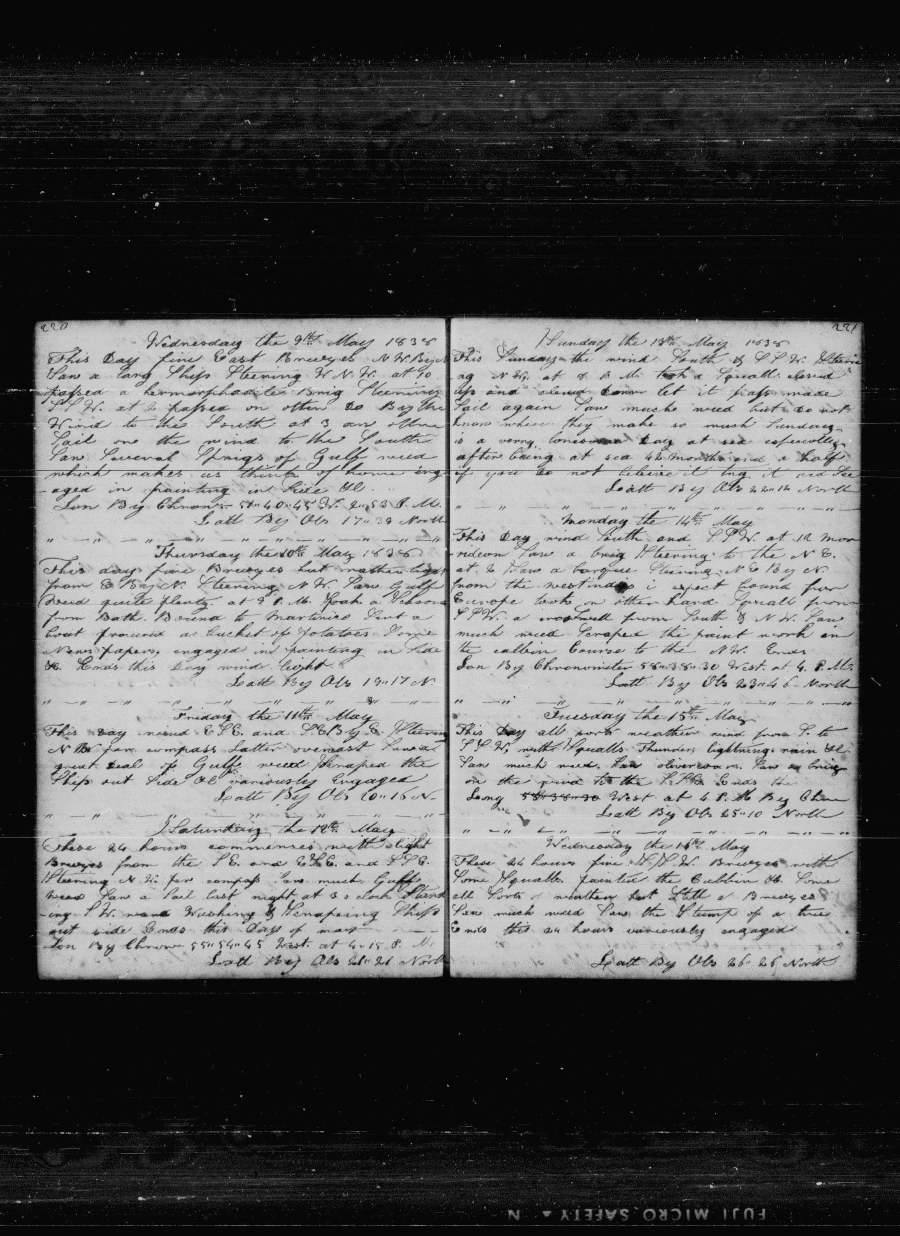 220
Wednesday the 9th May 1838
This Day fine East Breezes N W By N
Saw a Larg Ship Steering W. N. W. at 10
passed a hermorphadite Brig Steering
S S W. at 2 passed on other do By the
Wind to the South at 3 an other
Sail on the wind to the South
Saw Several Sprigs of Gulf weed
which makes us think of home eng
-aged in painting in Side &c.
Lon By Chronr 51"40"45 W. 2"53 P. M.
Latt By Obs 17"38 North
Thursday the 10th May 1838
This day fine Breezes but rather light
from E By N. Steering N W. Saw Gulf
Weed quite plenty. at P. M. a
from Bath Bound to Martinico Sent a
Boat procured a Bucket of Potatoes Some
News papers, engaged in painting in Side
&c. Ends this Day wind light
Latt By Obs 19"17 N
Friday the 11th May
This Day wind E S E. and S E By E Steering
N W per compass Latter overcast Saw a
great Deal of Gulf weed Scraped the
Ship out Side &c variously Engaged
Latt By Obs 20"16 N.
Saturday the 12th May
These 24 hours commences with slight
Breezes from the S E and E S E and S S E.
Steering N. W. per compass Saw much Gulf
weed Saw a Sail last night at 3 o clock Steer
-ing S W. Washing & Scrapeing Ship
out side Ends this Day of
Lon By Chronr 55"54"45 West. at 4"15 P. M.
Latt By Obs 21"21 North
221
Sunday the 13th May 1838
This Sunday the wind South & S S W. Steeri
ng N W. at 8 P M. took a Squall clewed
up and clewed down let it pass made
Sail again Saw much weed but do not
know where they make so much Sunday
is a very lonesome Day at sea especially
after being at sea 46 months and a half
if you do not it try it and See
Latt By Obs 22"12 North
Monday the 14th May
This Day wind South and S S W. at 12
Saw a brig Steering to the N E.
at 2 Saw a barque Steering N E By N.
from the westindes i expect bound for
Europe took on other hard Squall from
S S W. a from South & N W. Saw
much weed Scraped the paint work in
the cabbin Course to the N W. Ends
Lon By Chronometer 58"38"30 West. at 4. P. M.
Latt By Obs 23"46 North
Tuesday the 15th May
This Day all sorts weather wind from S. to
S S W. with Squalls. Thunder, lightning, rain &c
Saw much weed. Saw Saw a brig
on the wind to the Ends the
Long 58"38"30 West at 4 P. M By Chron
Latt By Obs 25"10 North
Wednesday the 16th May
These 24 hours fine Breezes with
Some Squalls painted the Cabbin &c. Some
all Sorts of weather but Still a Breezes
Saw much weed Saw the Stump of a tree
Ends this 24 hours variously engaged
Latt By Obs 26"26 North
FUJI MICRO SAFETY ▲ N